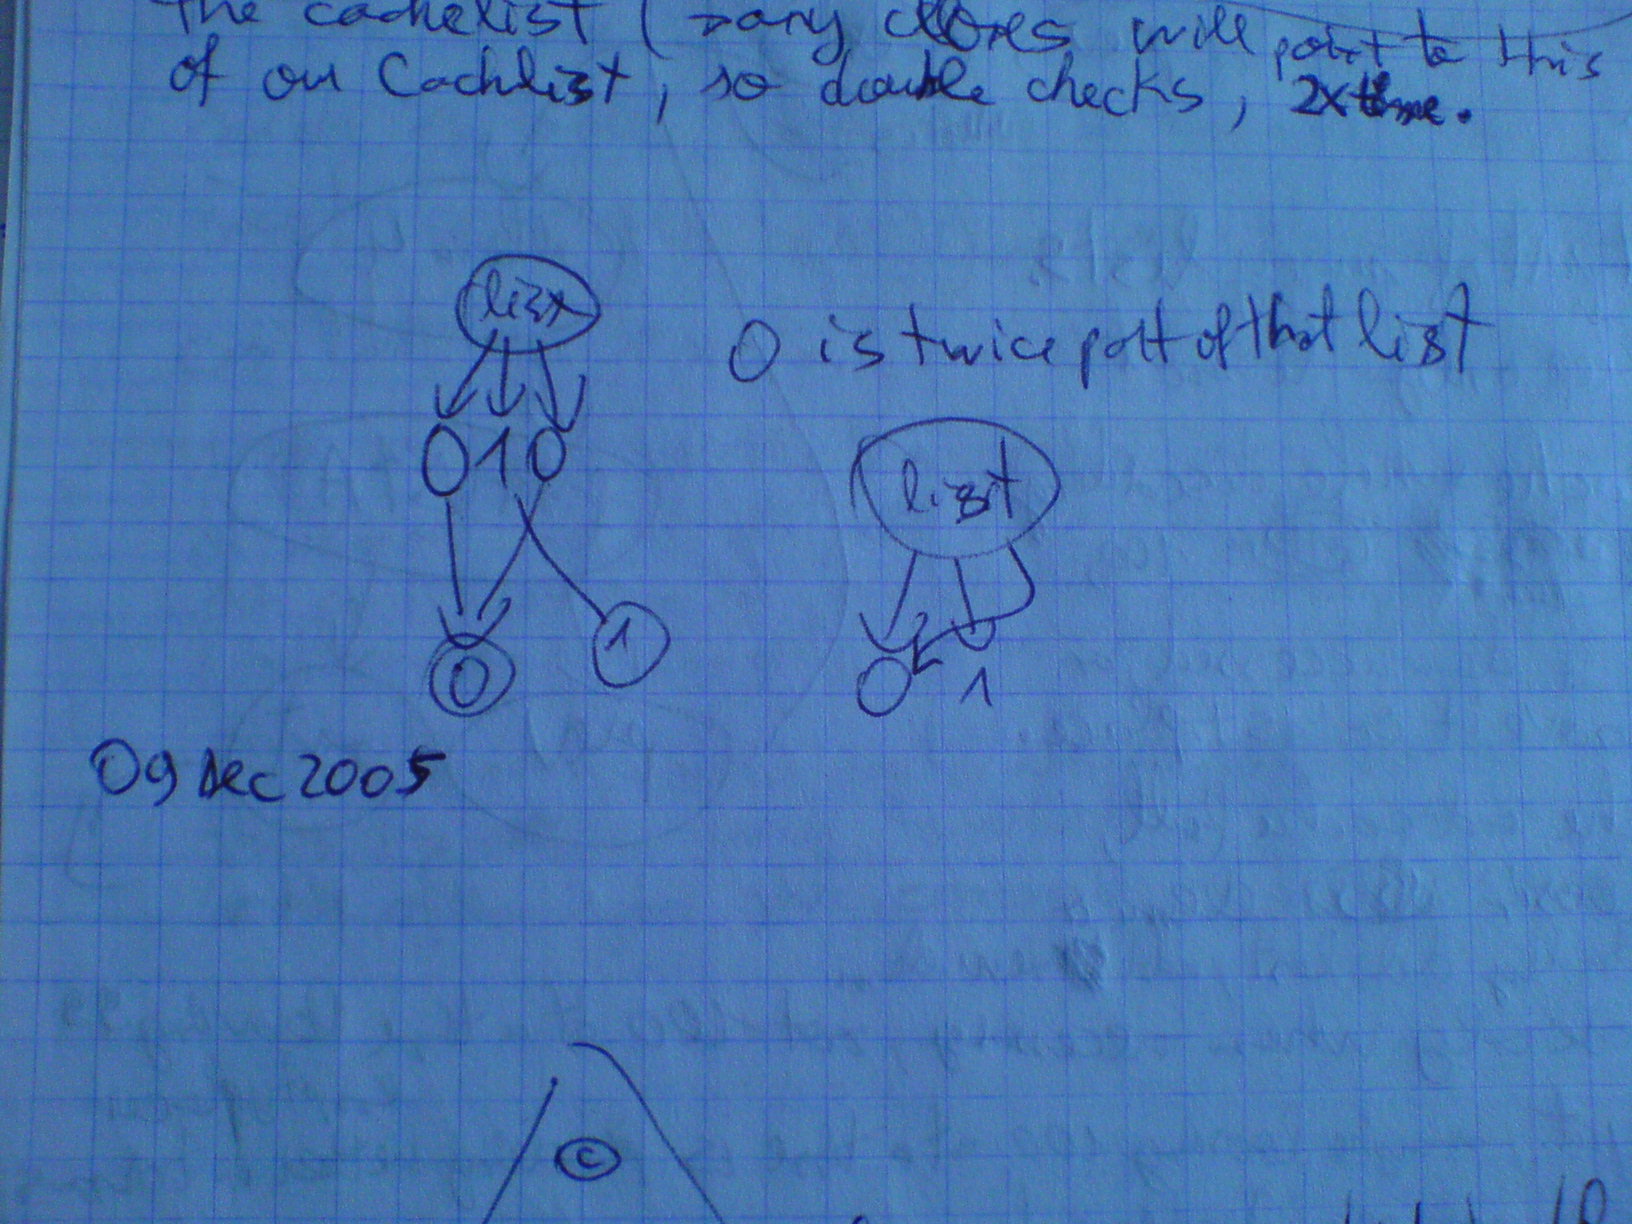 the cachelist ( many clones will point to this
of our Cachelist, so double checks, 2xtime.
list
0 is twice part of that list
0 1 0
list
0 1
0 1
09 Dec 2005
c